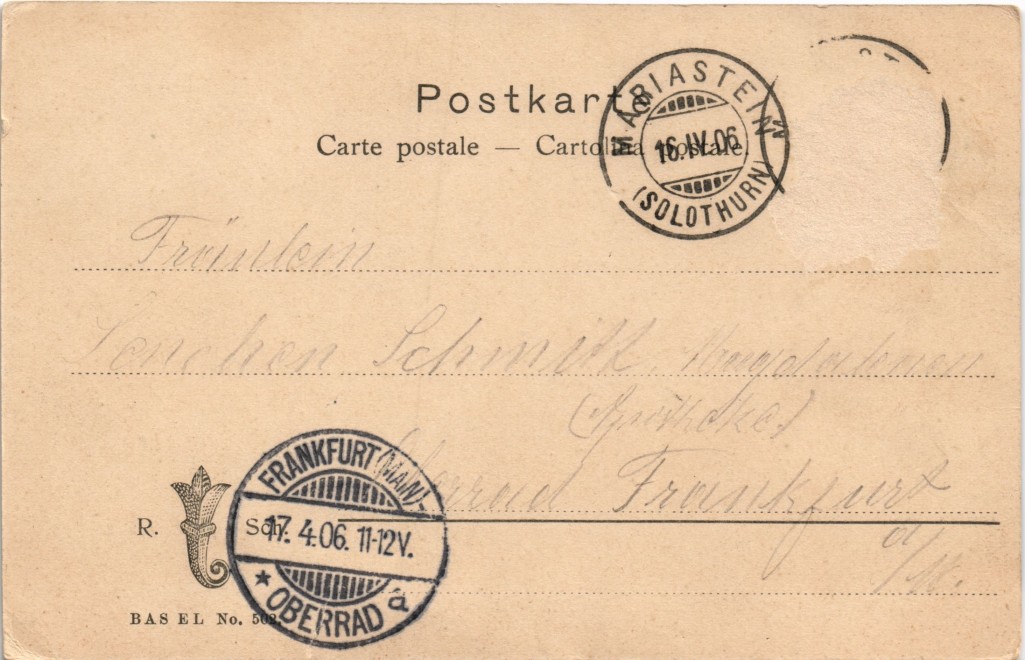 Postkarte
Carte postale — Cartolina postale.
MARIASTEIN
16.IV.06
(SOLOTHURN)
Fräulein
Lenchen Schmitt, Magdalenen
(Apotheke)
Oberrad Frankfurt
a/M.
FRANKFURT (MAIN)
17.4.06. 11-12V.
* OBERRAD
R. Sch.
BASEL No. 502